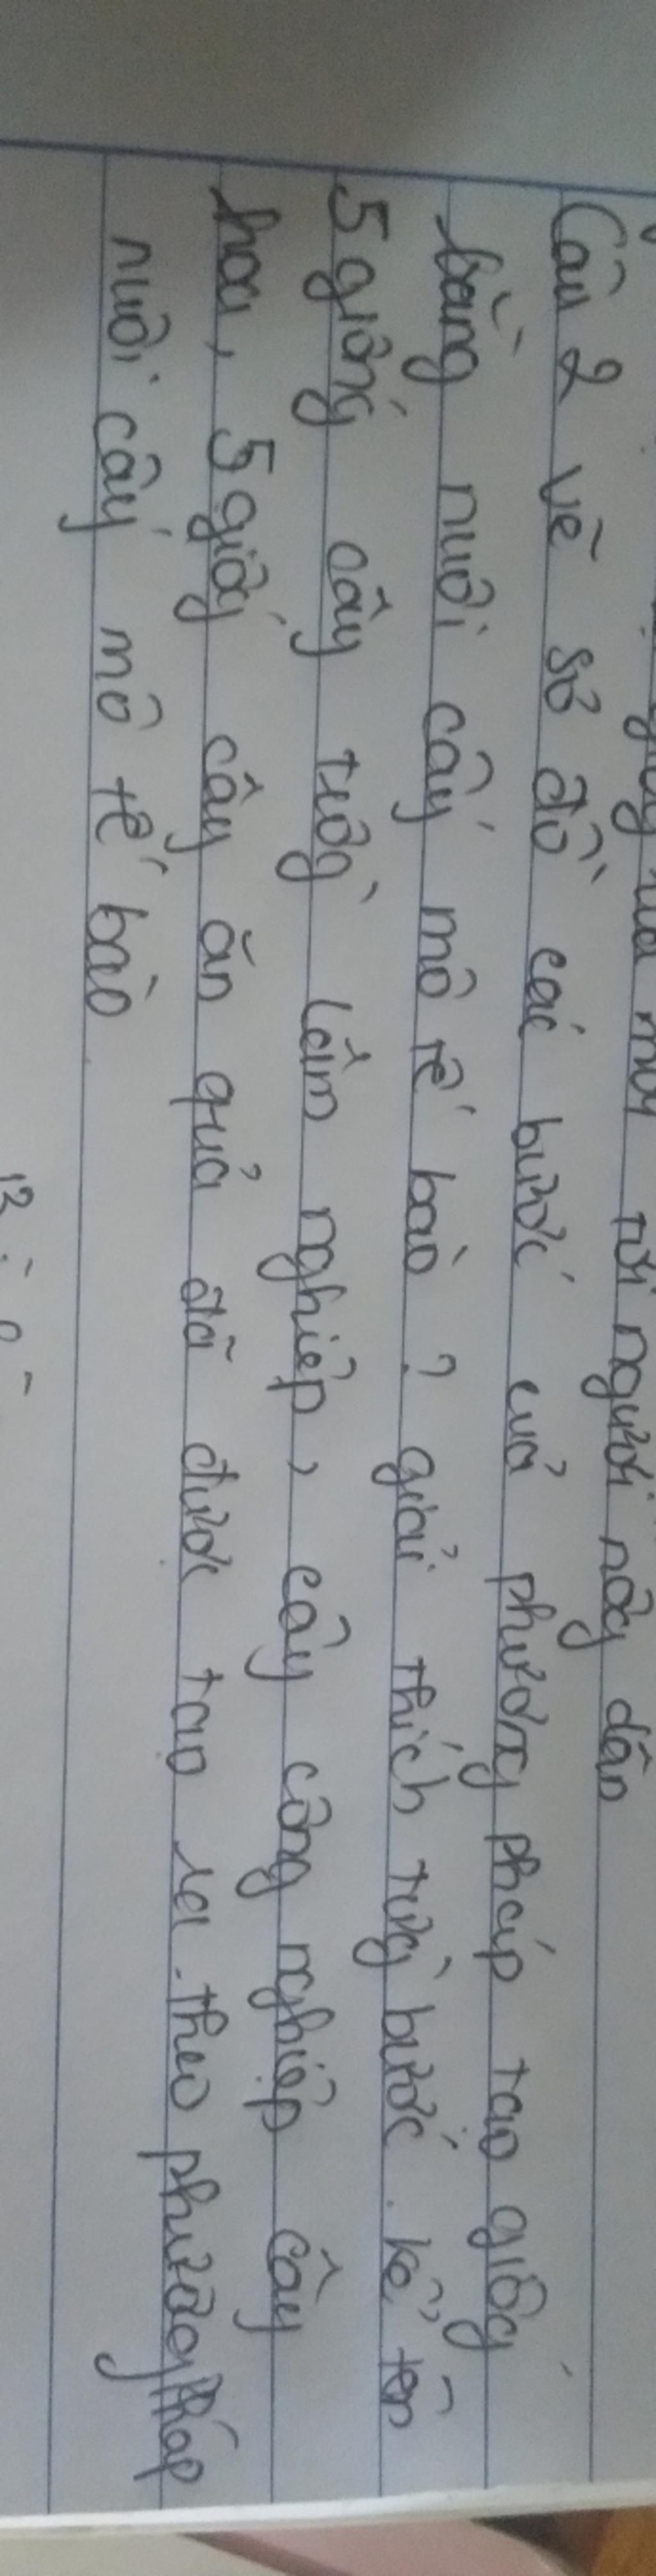 tới người nông dân
Câu 2 vẽ sơ đồ các bước của phương pháp tạo giống
bằng nuôi cấy mô tế bào ? giải thích từng bước. kể tên
5 giống cây trồng lâm nghiệp, cây công nghiệp cây
hoa, 5 giống cây ăn quả đã được tạo ra theo phương pháp
nuôi cấy mô tế bào